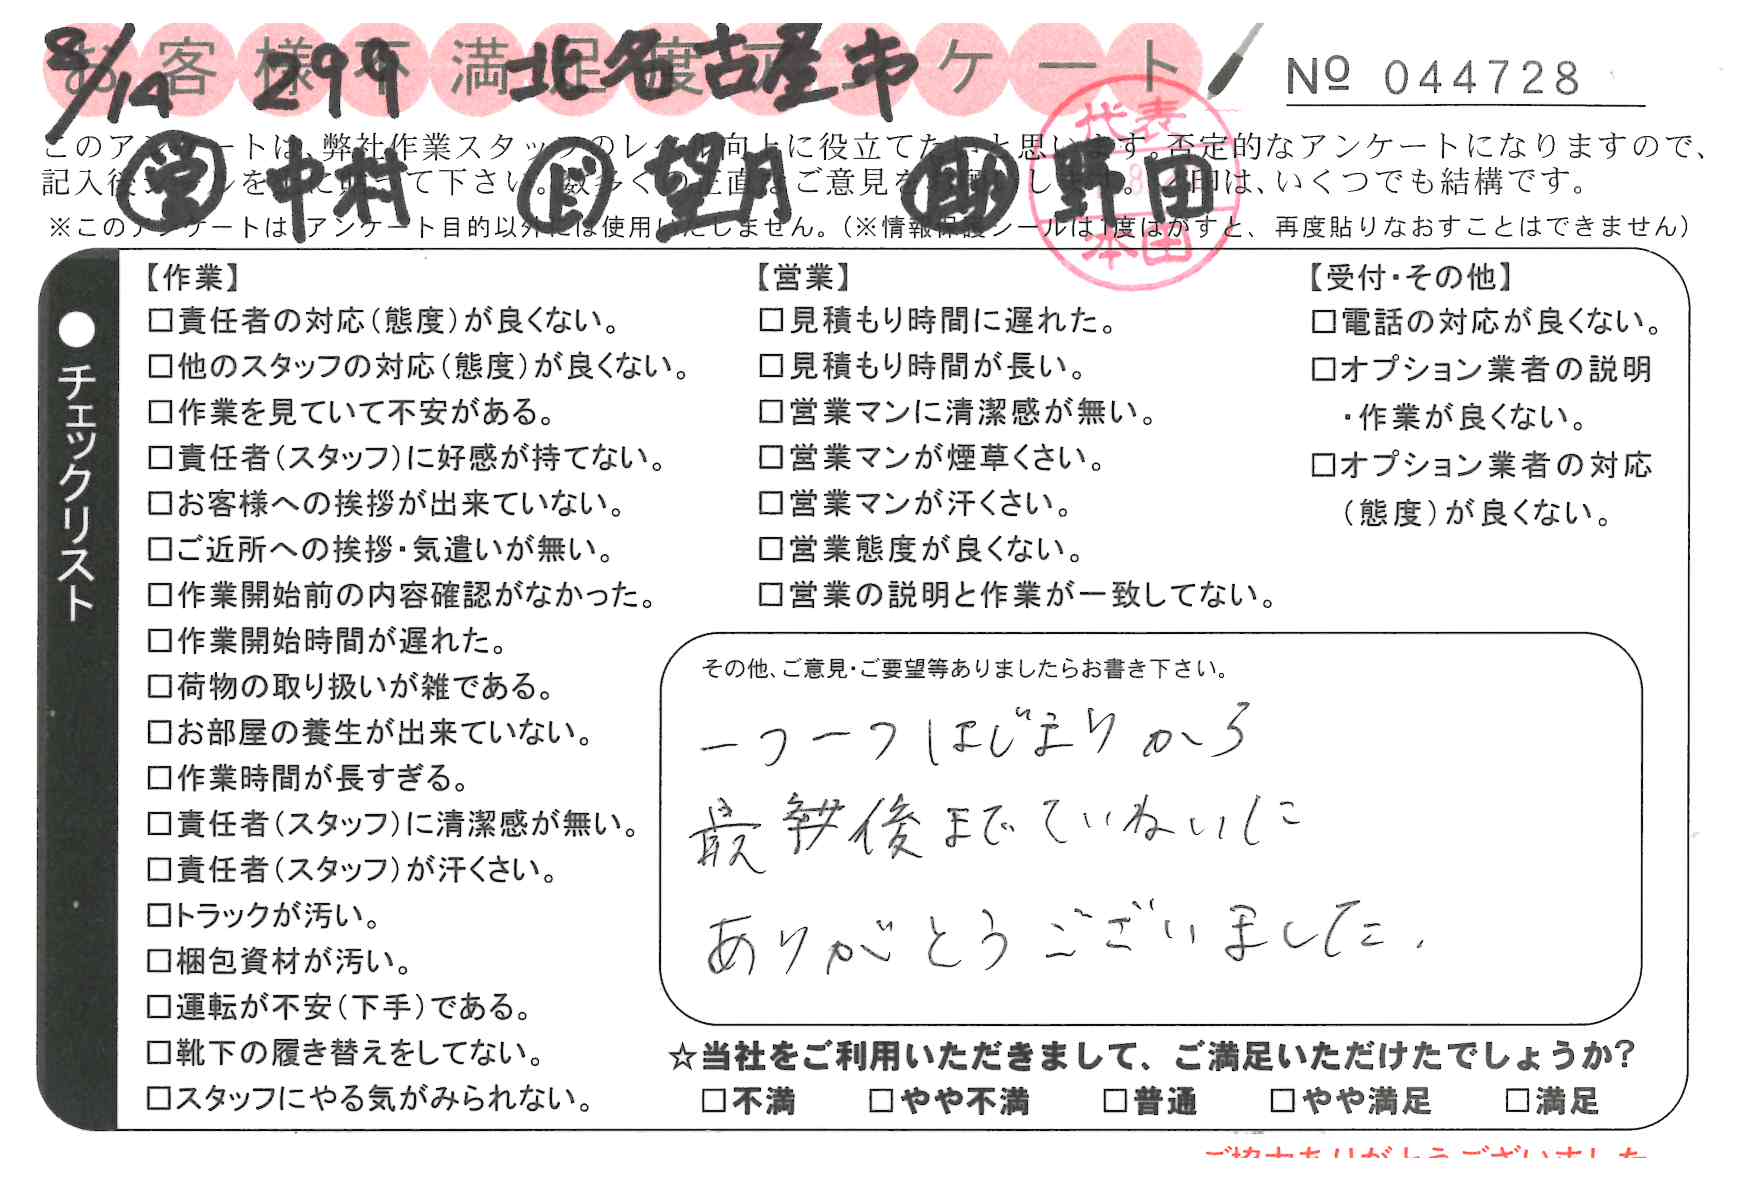 お客様不満足度アンケート
8/14 299 北名古屋市
№ 044728
営 中村 ド 望月 助 野田
代表
本田
このアンケートは、弊社作業スタッフのレベル向上に役立てたいと思います。否定的なアンケートになりますので、
記入後シールを 下さい。数多くの正直なご意見をお願いします。 印は、いくつでも結構です。
※このアンケートは、アンケート目的以外には使用いたしません。（※情報保護シールは1度はがすと、再度貼りなおすことはできません）
●チェックリスト
【作業】
□責任者の対応（態度）が良くない。
□他のスタッフの対応（態度）が良くない。
□作業を見ていて不安がある。
□責任者（スタッフ）に好感が持てない。
□お客様への挨拶が出来ていない。
□ご近所への挨拶・気遣いが無い。
□作業開始前の内容確認がなかった。
□作業開始時間が遅れた。
□荷物の取り扱いが雑である。
□お部屋の養生が出来ていない。
□作業時間が長すぎる。
□責任者（スタッフ）に清潔感が無い。
□責任者（スタッフ）が汗くさい。
□トラックが汚い。
□梱包資材が汚い。
□運転が不安（下手）である。
□靴下の履き替えをしてない。
□スタッフにやる気がみられない。
【営業】
□見積もり時間に遅れた。
□見積もり時間が長い。
□営業マンに清潔感が無い。
□営業マンが煙草くさい。
□営業マンが汗くさい。
□営業態度が良くない。
□営業の説明と作業が一致してない。
【受付・その他】
□電話の対応が良くない。
□オプション業者の説明
・作業が良くない。
□オプション業者の対応
（態度）が良くない。
その他、ご意見・ご要望等ありましたらお書き下さい。
一つ一つはじまりから
最後までていねいに
ありがとうございました。
☆当社をご利用いただきまして、ご満足いただけたでしょうか？
□不満 □やや不満 □普通 □やや満足 □満足
ご協力ありがとうございました